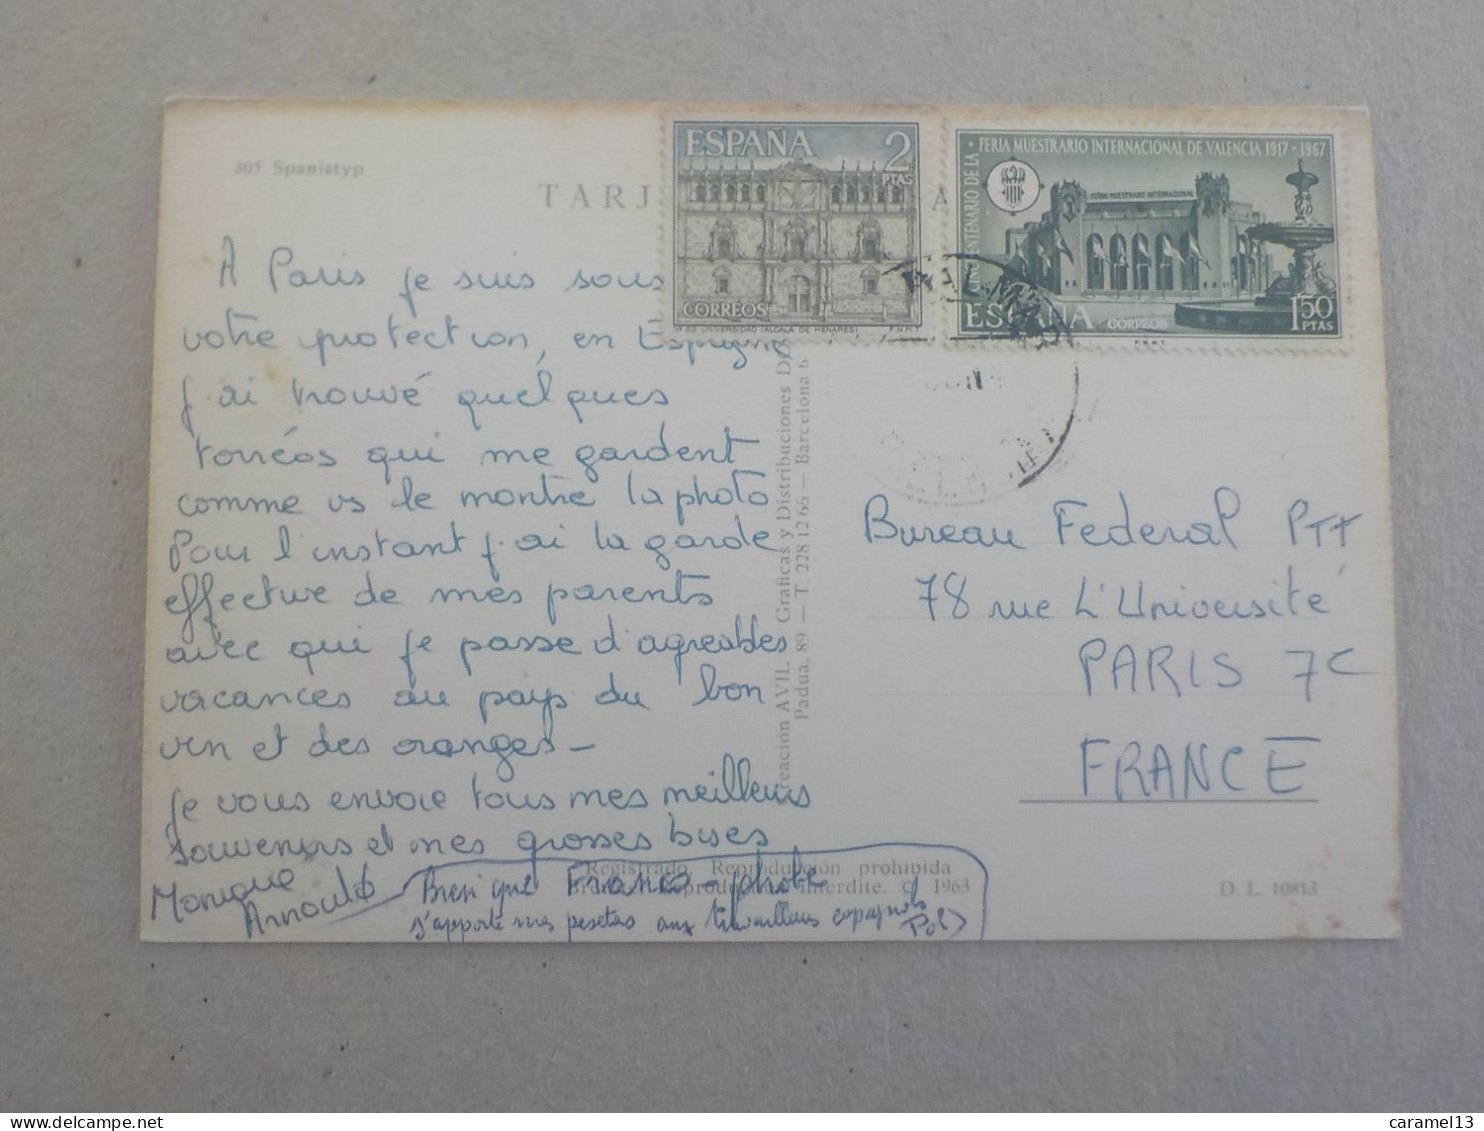 305 Spanistyp
TARJ A
ESPAÑA 2
PTAS
CORREOS
UNIVERSIDAD (ALCALA DE HENARES) F.N.M.T.
FERIA MUESTRARIO INTERNACIONAL DE VALENCIA 1917-1967
FERIA MUESTRARIO INTERNACIONAL
ESPAÑA CORREOS 1'50
PTAS
F.N.M.T.
A Paris je suis sous
votre protection, en Espagne
j'ai trouvé quelques
torréos qui me gardent
comme vs le montre la photo
Pour l'instant j'ai la garde
effective de mes parents
avec qui je passe d'agreables
vacances au pays du bon
vin et des oranges –
je vous envoie tous mes meilleurs
souvenirs et mes grosses bises
Monique
Arnould
Bien que Franco-phobe
j'apporte mes pesetas aux travailleurs espagnols
Pol
Creación AVIL Graficas y Distribuciones D
Padua, 89 — T. 228 12 66 — Barcelona 6
Bureau Federal PTT
78 rue L'Université
PARIS 7e
FRANCE
Registrado. Reproducción prohibida
interdite. © 1963
D. L. 10813
www.delcampe.net
caramel13